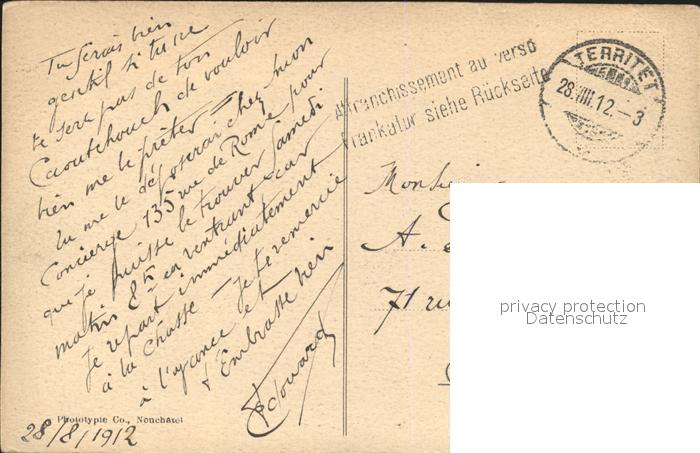 Tu serais bien
gentil si tu ne
te sers pas de ton
Caoutchouc de vouloir
bien me le prêter —
tu me le déposerai chez mon
Concierge 135 rue de Rome pour
que je puisse le trouver Samedi
matin 8h en rentrant car
Je repart immédiatement
à la chasse — Je te remercie
à l'avance et
t'Embrasse bien
Edouard
Phototypie Co., Neuchatel
28/8/1912
Affranchissement au verso
Frankatur siehe Rückseite
TERRITET
28.VIII.12.-3
Monsieur
A.
71 ru
privacy protection
Datenschutz